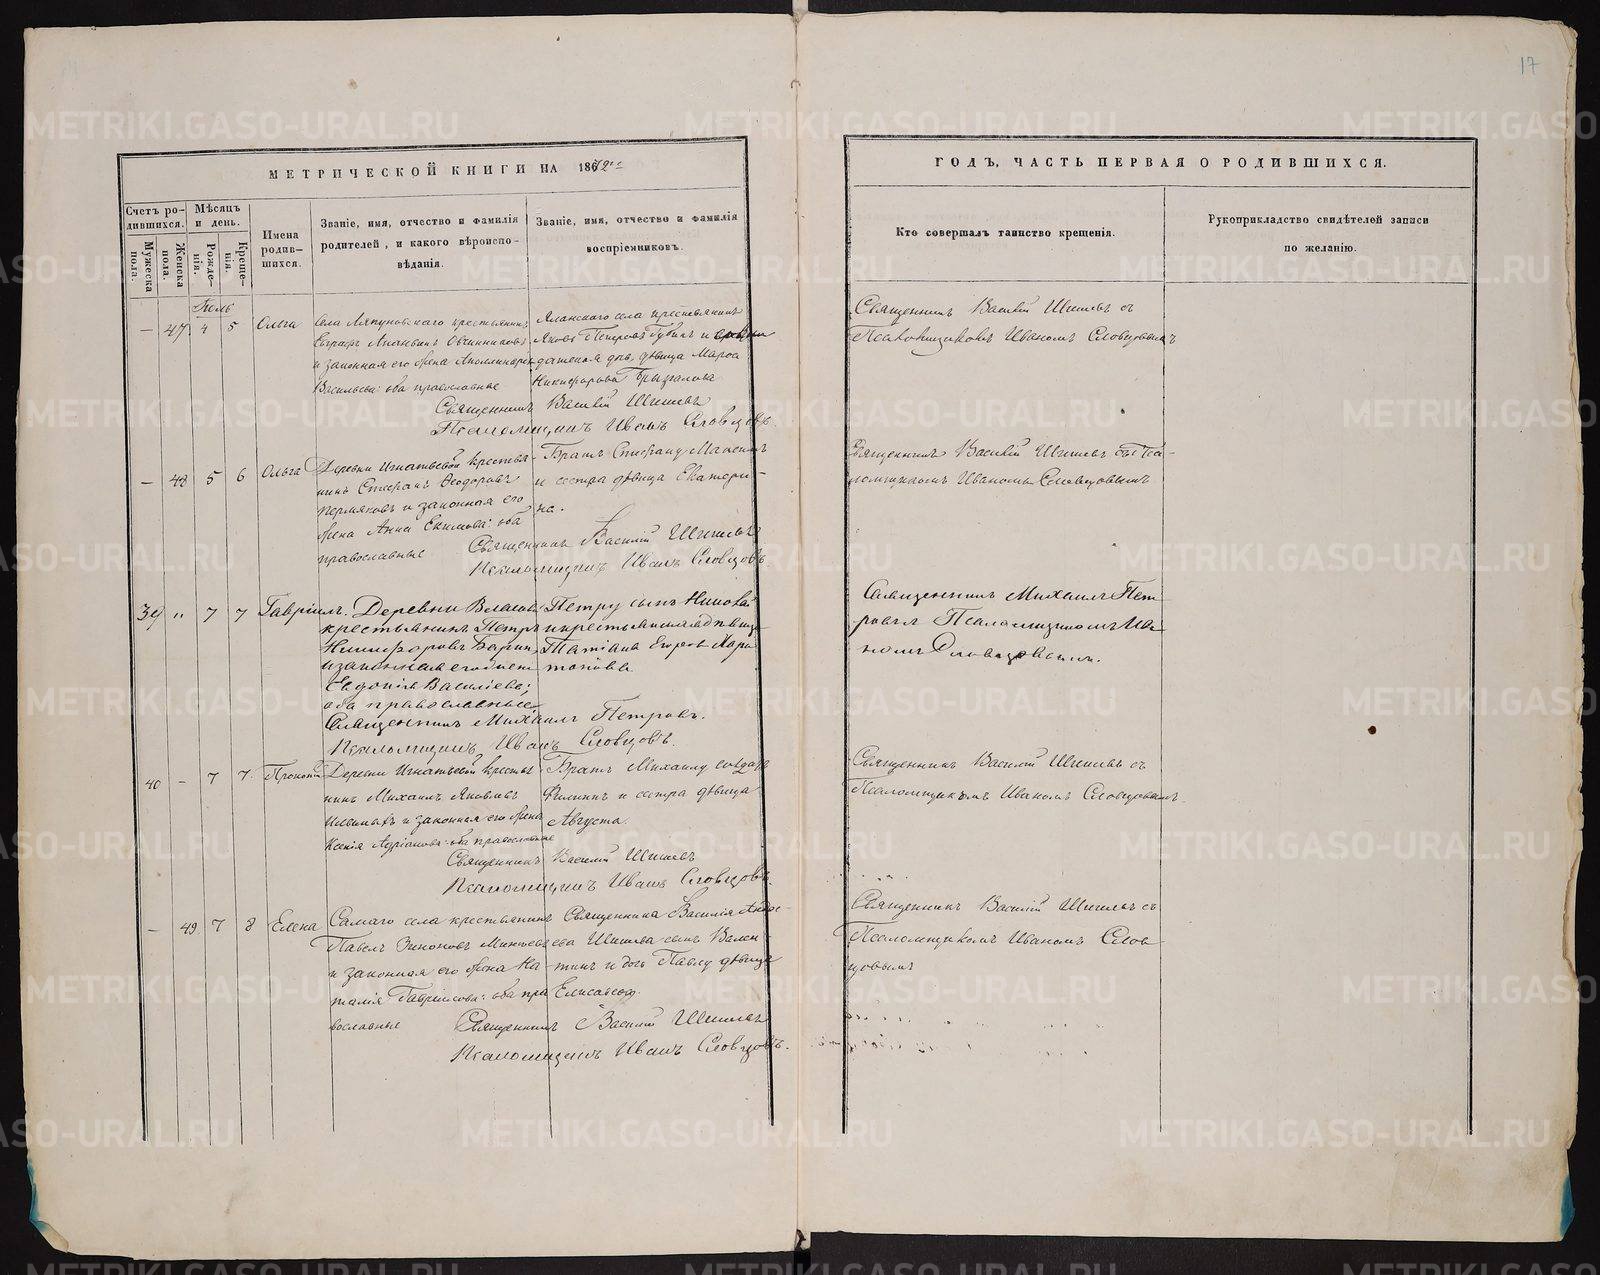 17
МЕТРИЧЕСКОЙ КНИГИ НА 1872
ГОДЪ, ЧАСТЬ ПЕРВАЯ О РОДИВШИХСЯ.
Счетъ ро-
дившихся.
Мужеска
пола.
Женска
пола.
Мѣсяцъ
и день.
Рожде-
нія.
Креще-
нія.
Имена
родив-
шихся.
Званіе, имя, отчество и фамилія
родителей, и какого вѣроиспо-
вѣданія.
Званіе, имя, отчество и фамилія
воспріемниковъ.
Кто совершалъ таинство крещенія.
Рукоприкладство свидѣтелей записи
по желанію.
Іюль
— 47 4 5 Ольга
Села Ляпуновскаго крестьянинъ
Овчинниковъ
и законная его жена Аполлинарія
Васильева: оба православные
Яланского села крестьянинъ
Яковъ Петровъ Губинъ и
дѣвица Марѳа
Никифорова Брызгалова
Священникъ Василій Шишевъ
Псаломщикъ Иванъ Словцовъ
Священникъ Василій Шишевъ съ
Псаломщикомъ Иваномъ Словцовымъ
— 48 5 6 Ольга
Деревни Игнатьевой крестья-
нинъ Стефанъ Ѳеодоровъ
Пермяковъ и законная его
жена Анна Екимова: оба
православные
Братъ Стефану
и сестра дѣвица Екатери-
на.
Священникъ Василій Шишевъ
Псаломщикъ Иванъ Словцовъ
Священникъ Василій Шишевъ съ Пса-
ломщикомъ Иваномъ Словцовымъ
39 " 7 7 Гавріилъ.
Деревни
крестьянинъ Петръ
Никифоровъ
и законная его жена
Евдокія Васильева;
оба православные
Петру сынъ
и крестьянская дѣвица
Татіана Егорова Хари-
тонова
Священникъ Михаилъ Петровъ.
Псаломщикъ Иванъ Словцовъ.
Священникъ Михаилъ Пет-
ровъ Псаломщикомъ Ива-
номъ Словцовымъ.
40 — 7 7 Прокопій
Деревни Игнатьевой крестья-
нинъ Михаилъ Яковлевъ
и законная его жена
Ксенія Адріанова: оба православные
Братъ Михаилу солдатъ
Филиппъ и сестра дѣвица
Августа.
Священникъ Василій Шишевъ
Псаломщикъ Иванъ Словцовъ.
Священникъ Василій Шишевъ съ
Псаломщикомъ Иваномъ Словцовымъ.
— 49 7 8 Елена
Самаго села крестьянинъ
Павелъ
и законная его жена На-
талія Гавріилова: оба пра-
вославные
Священника Василія Андре-
ева Шишева сынъ Вален-
тинъ и дочь Павлу дѣвица
Елисавета.
Священникъ Василій Шишевъ
Псаломщикъ Иванъ Словцовъ.
Священникъ Василій Шишевъ съ
Псаломщикомъ Иваномъ Слов-
цовымъ
METRIKI.GASO-URAL.RU